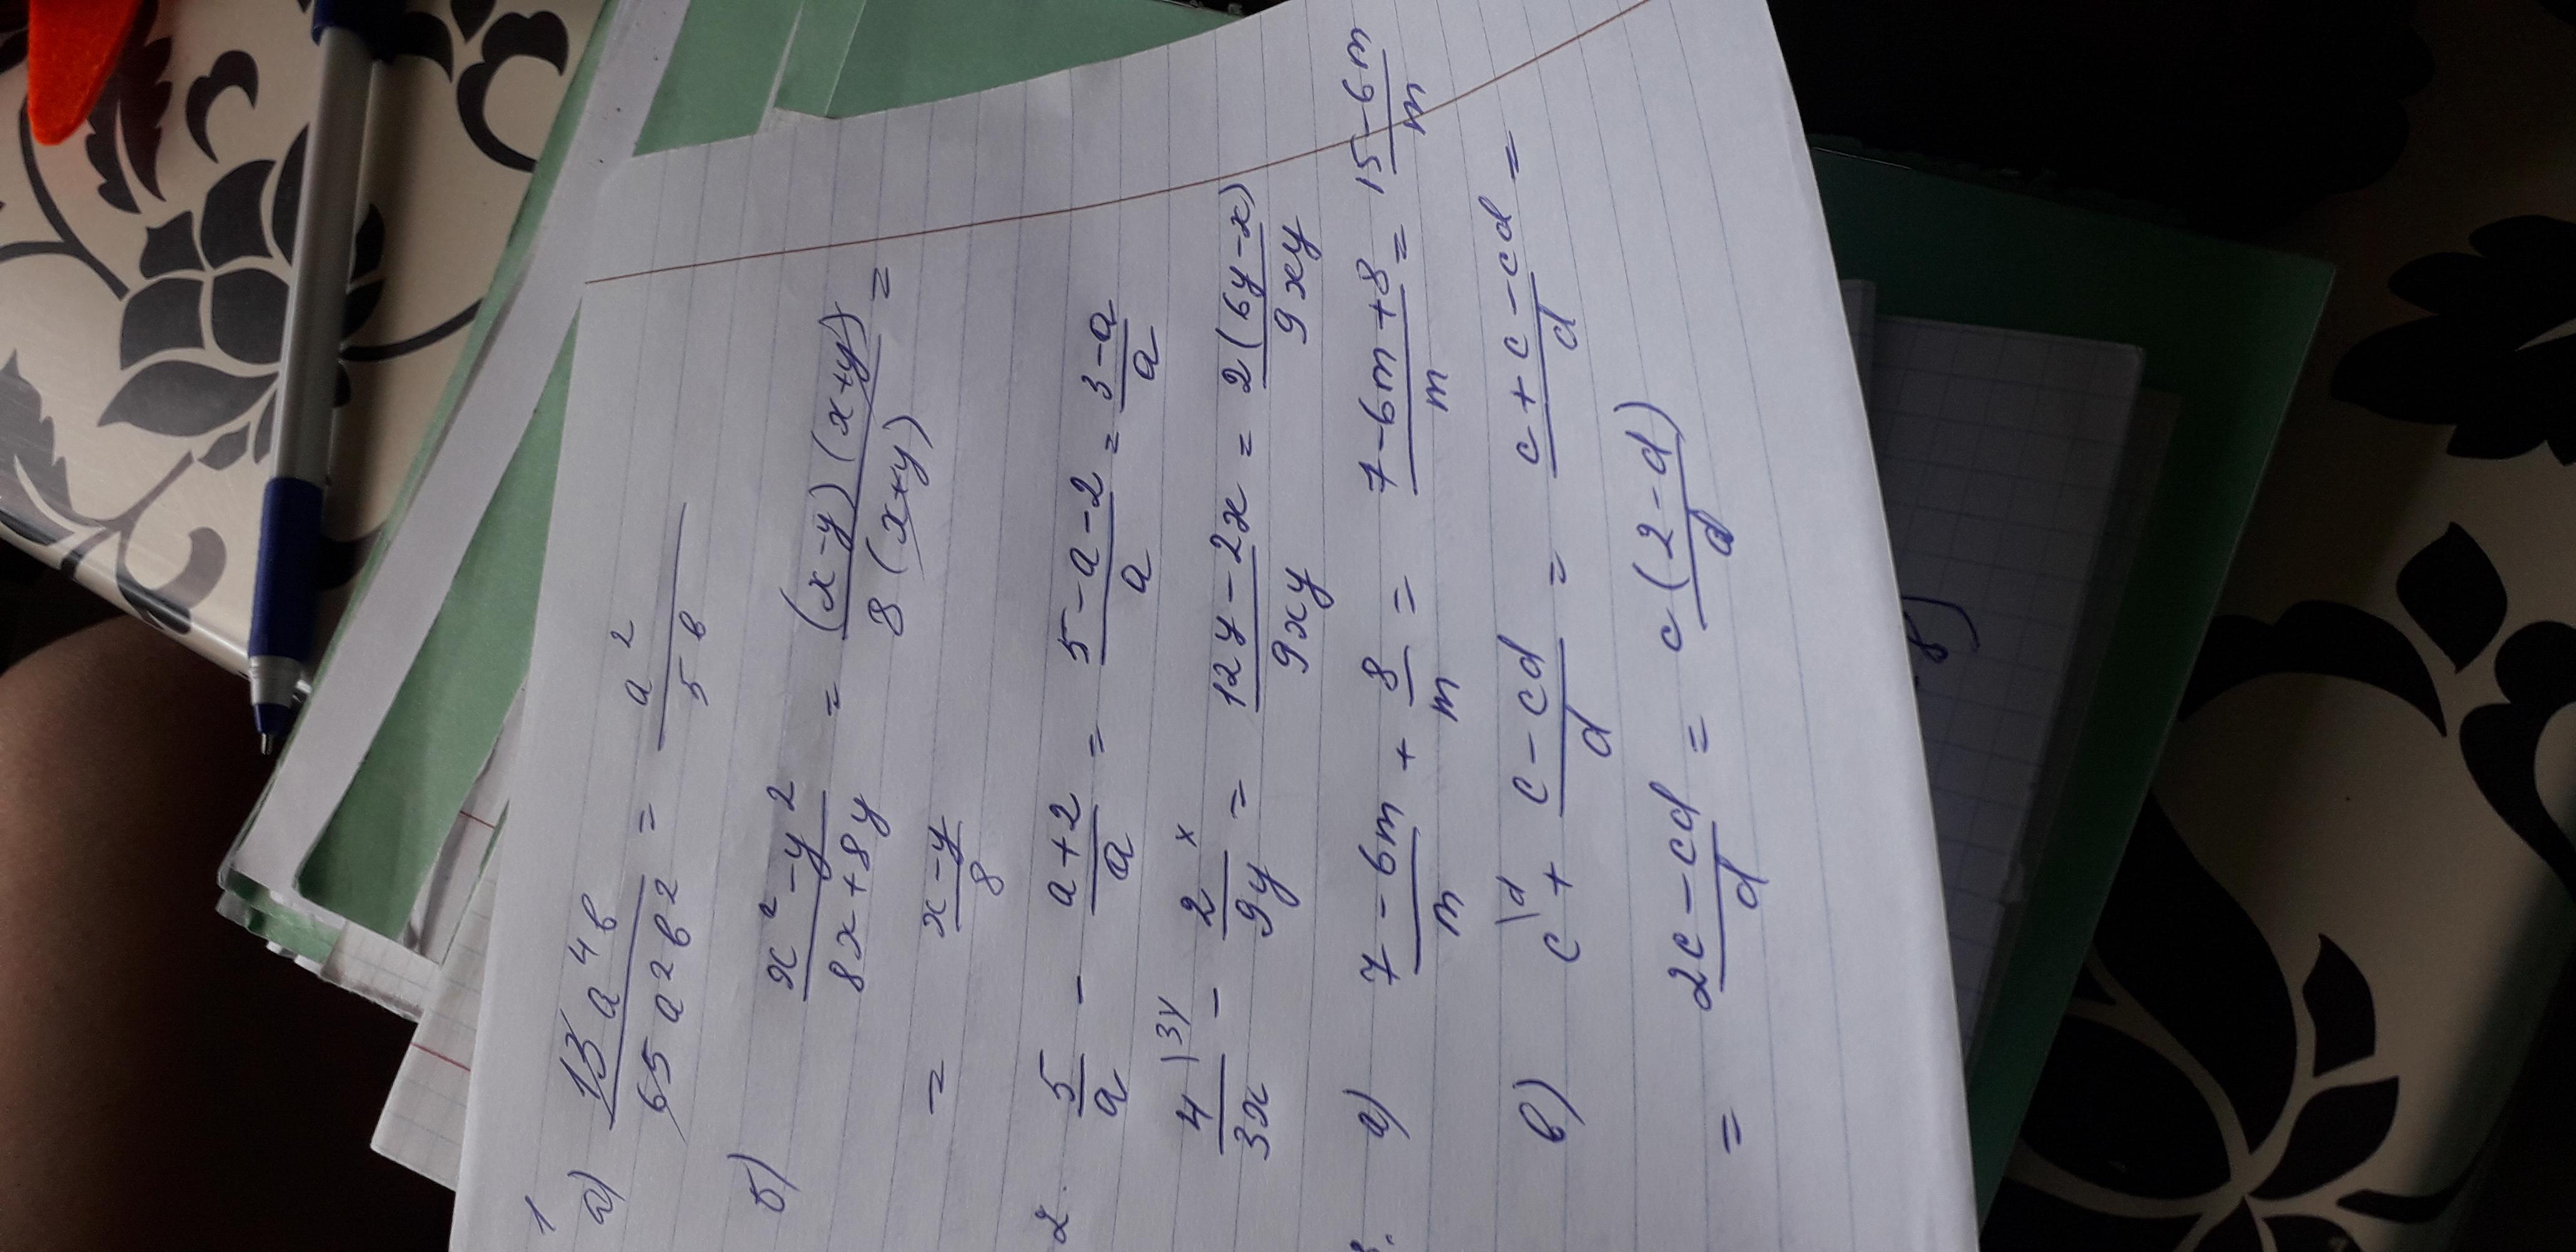 1
а) 13a⁴b / 65a²b² = a² / 5b
б) x² - y² / 8x + 8y = (x - y)(x + y) / 8(x + y) =
= x - y / 8
2. 5/a - a + 2 / a = 5 - a - 2 / a = 3 - a / a
4/3x \3y - 2/9y x = 12y - 2x / 9xy = 2(6y - x) / 9xy
3. а) 7 - 6m / m + 8/m = 7 - 6m + 8 / m = 15 - 6m / m
в) c \d + c - cd / d = c + c - cd / d =
= 2c - cd / d = c(2 - d) / d